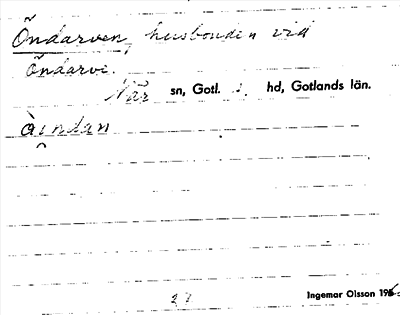 Öndarven, husbonden vid
Öndarvi.
När sn, Gotl. s. hd, Gotlands län.
àindan
27
Ingemar Olsson 195